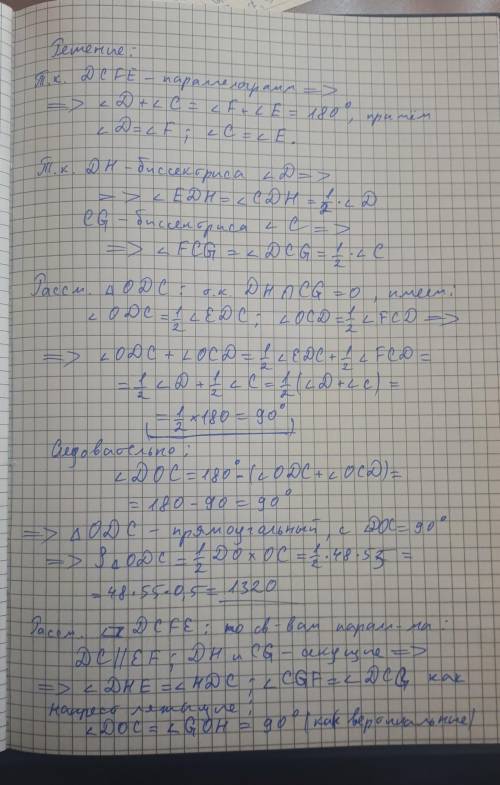 Решение:
Т.к. DCFE - параллелограмм =>
=> ∠D+∠C = ∠F+∠E = 180°, причём
∠D=∠F; ∠C=∠E.
Т.к. DH - биссектриса ∠D =>
=> ∠EDH=∠CDH=1/2·∠D
CG - биссектриса ∠C =>
=> ∠FCG=∠DCG=1/2·∠C
Рассм. △ODC: т.к. DH∩CG=O, имеем:
∠ODC=1/2∠EDC; ∠OCD=1/2∠FCD =>
=> ∠ODC+∠OCD=1/2∠EDC+1/2∠FCD=
=1/2∠D+1/2∠C=1/2(∠D+∠C)=
=1/2×180=90°
Следовательно:
∠DOC=180°-(∠ODC+∠OCD)=
=180-90=90°
=> △ODC - прямоугольный, с DOC=90°
=> S△ODC=1/2DO×OC=1/2·48·55=
=48·55·0,5=1320
Рассм. ▱ DCFE: по св-вам парал-ма:
DC||EF; DH и CG - секущие =>
=> ∠DHE=∠HDC; ∠CGF=∠DCG, как
накрест лежащие;
∠DOC=∠GOH=90° (как вертикальные)